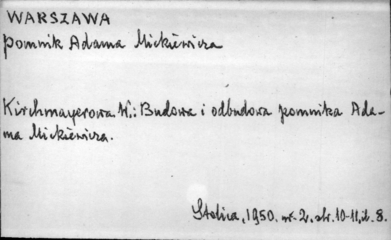 WARSZAWA
pomnik Adama Mickiewicza
Kirchmayerowa W.: Budowa i odbudowa pomnika Ada-
ma Mickiewicza.
Stolica, 1950. nr. 2. str. 10-11, il. 8.